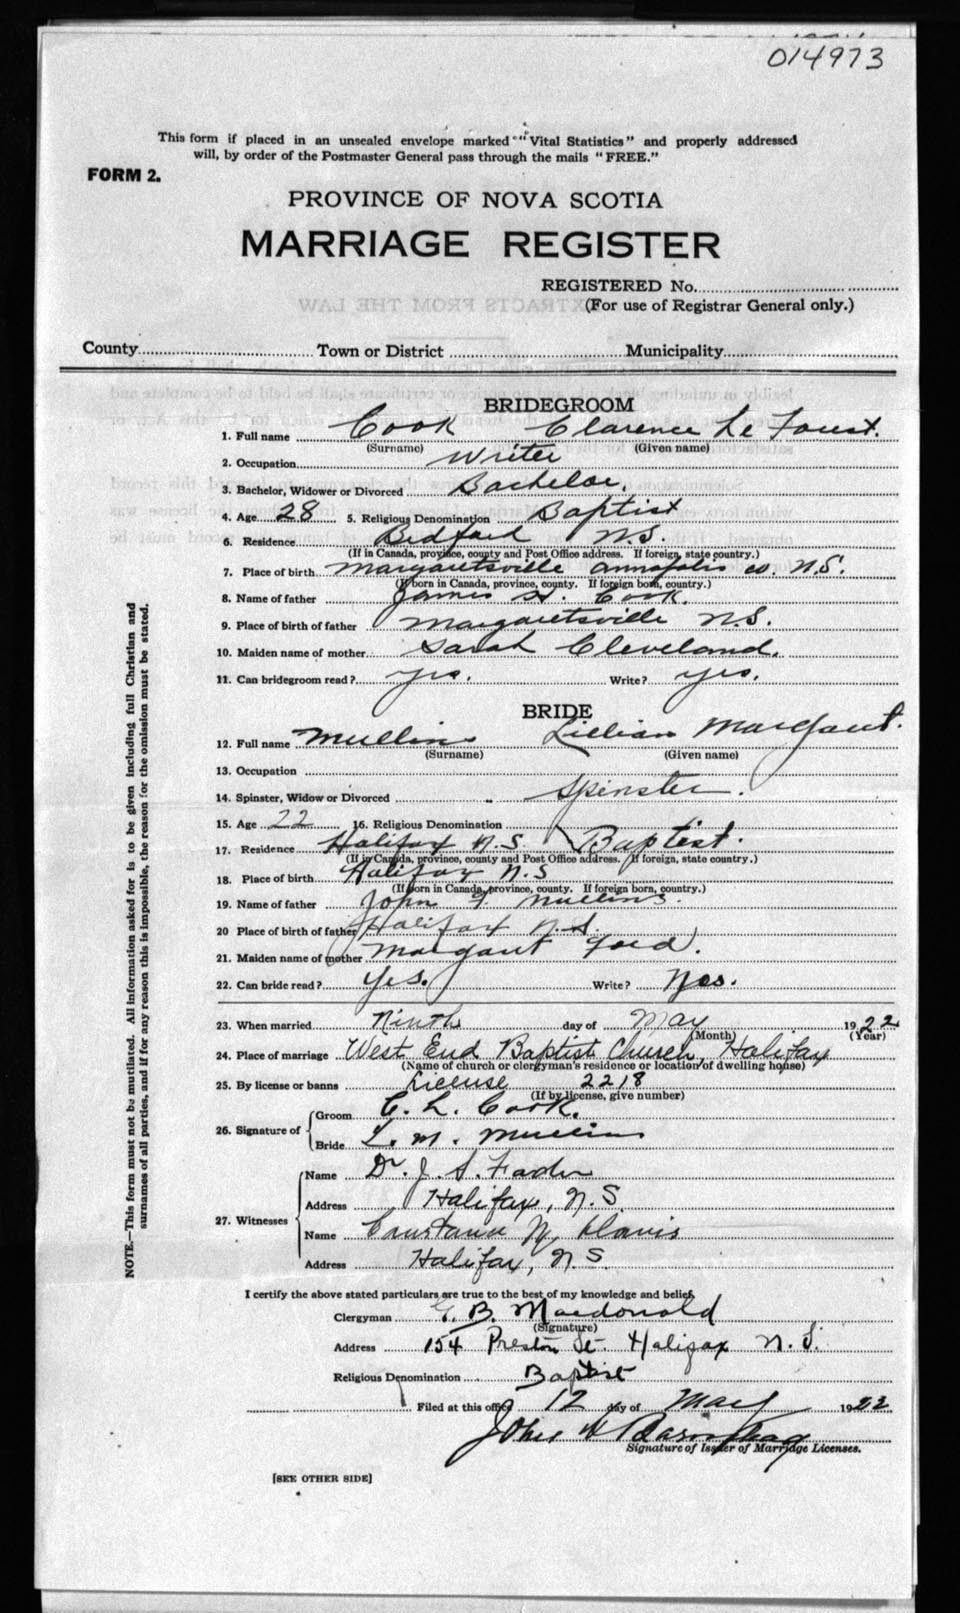 014973
This form if placed in an unsealed envelope marked "Vital Statistics" and properly addressed
will, by order of the Postmaster General pass through the mails "FREE."
FORM 2.
PROVINCE OF NOVA SCOTIA
MARRIAGE REGISTER
REGISTERED No.
(For use of Registrar General only.)
EXTRACTS FROM THE LAW
County Town or District Municipality
BRIDEGROOM
1. Full name Cook Clarence Le Foust.
(Surname) (Given name)
2. Occupation Writer
3. Bachelor, Widower or Divorced Bachelor.
4. Age 28 5. Religious Denomination Baptist
6. Residence Bedford N.S.
(If in Canada, province, county and Post Office address. If foreign, state country.)
7. Place of birth Margaretsville Annapolis co. N.S.
(If born in Canada, province, county. If foreign born, country.)
8. Name of father James H. Cook.
9. Place of birth of father Margaretsville N.S.
10. Maiden name of mother Sarah Cleveland.
11. Can bridegroom read? yes. Write? yes.
BRIDE
12. Full name Mullins Lillian Margaut.
(Surname) (Given name)
13. Occupation
14. Spinster, Widow or Divorced Spinster.
15. Age 22 16. Religious Denomination
17. Residence Halifax N.S. Baptist.
(If in Canada, province, county and Post Office address. If foreign, state country.)
18. Place of birth Halifax N.S
(If born in Canada, province, county. If foreign born, country.)
19. Name of father John F. Mullins.
20 Place of birth of father Halifax N.S.
21. Maiden name of mother Margaut Ford.
22. Can bride read? Yes. Write? Yes.
23. When married Ninth day of May 1922
(Month) (Year)
24. Place of marriage West End Baptist Church, Halifax
(Name of church or clergyman's residence or location of dwelling house)
25. By license or banns License 2218
(If by license, give number)
26. Signature of Groom C. L. Cook.
Bride L. M. Mullins
27. Witnesses Name Dr. J. S. Fader
Address Halifax, N.S
Name N. Davis
Address Halifax, N.S.
I certify the above stated particulars are true to the best of my knowledge and belief.
Clergyman G. B. Macdonald
(Signature)
Address 154 Preston St. Halifax N.S.
Religious Denomination Baptist
Filed at this office 12 day of May 1922
John H
Signature of Issuer of Marriage Licenses.
[SEE OTHER SIDE]
NOTE.—This form must not be mutilated. All information asked for is to be given including full Christian and
surnames of all parties, and if for any reason this is impossible, the reason for the omission must be stated.